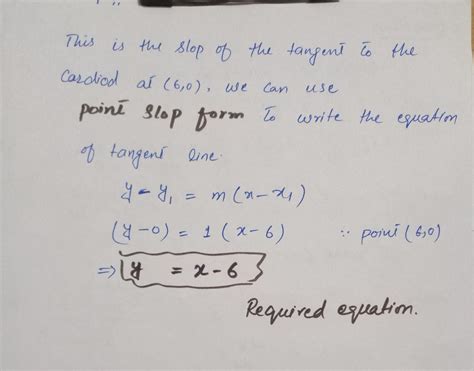 This is the slop of the tangent to the
Cardiod at (6,0), we can use
point slop form to write the equation
of tangent line.
y - y₁ = m(x-x₁)
(y-0) = 1(x-6) ∵ point (6,0)
⇒ y = x-6
Required equation.